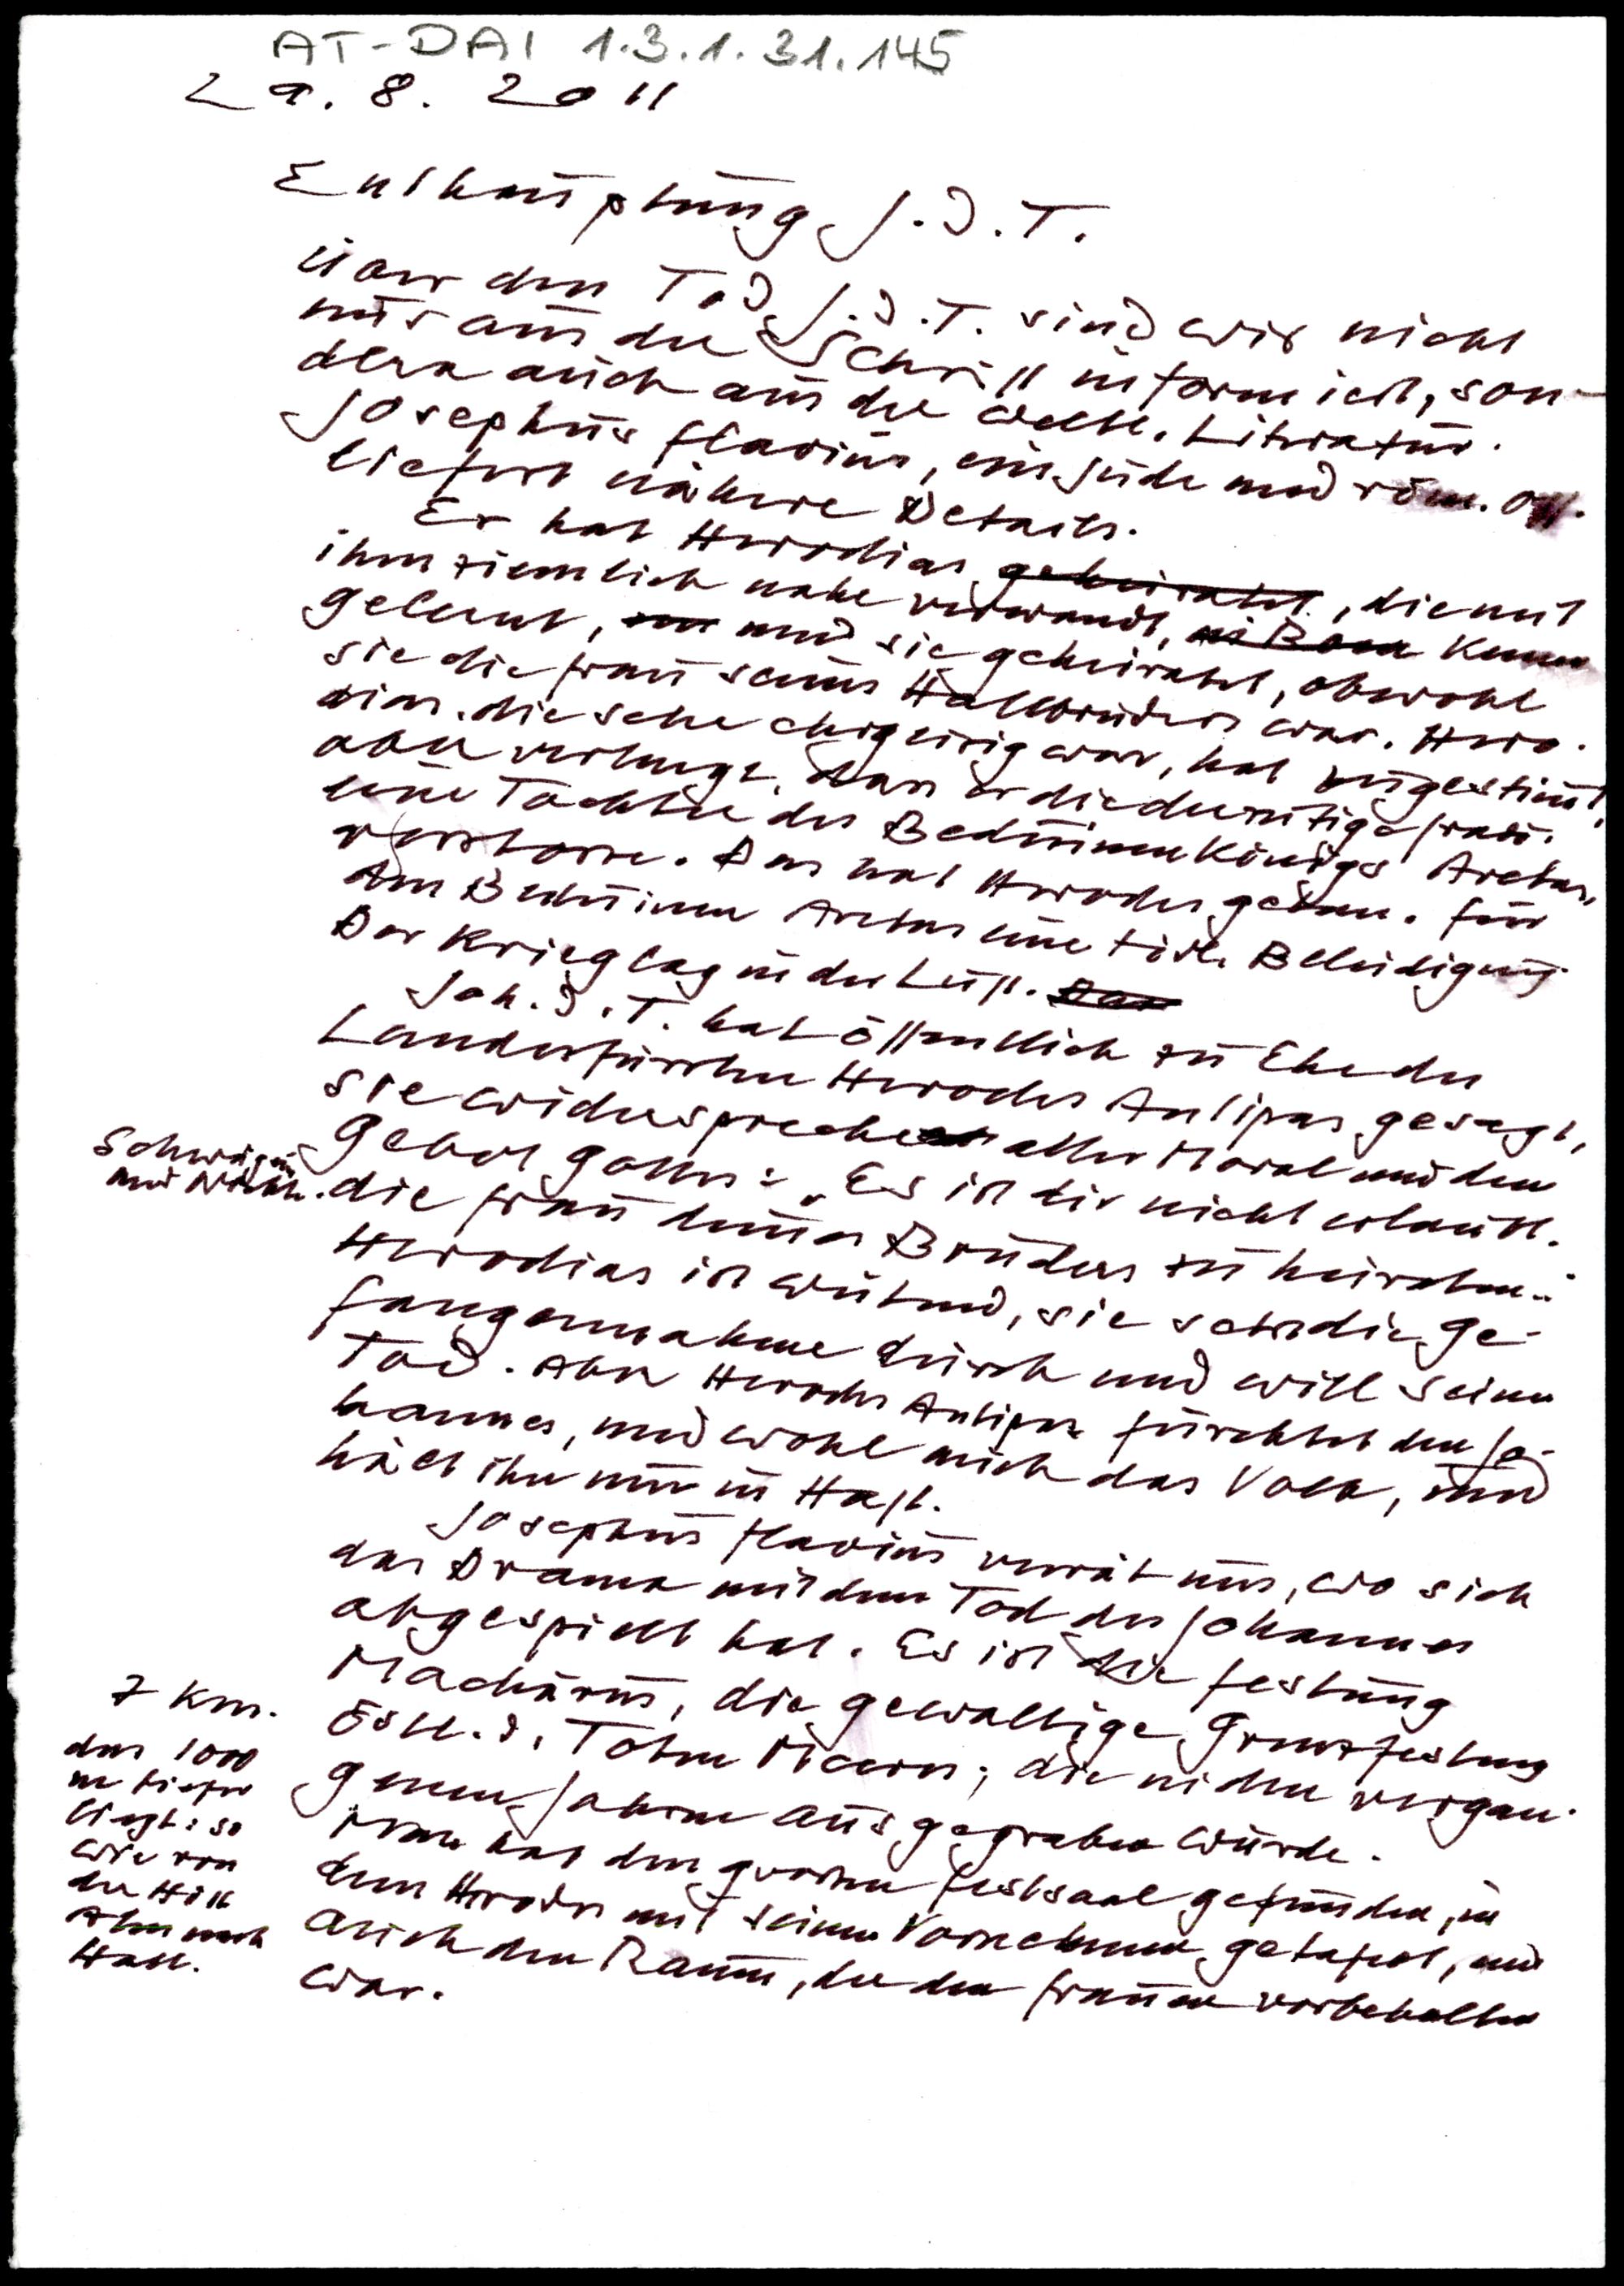 AT-DAI 1.3.1.31.145
29. 8. 2011
Enthauptung J. d. T.
Über den Tod J. d. T. sind wir nicht
nur aus der Schrift informiert, son-
dern auch aus der weltl. Literatur.
Josephus Flavius, ein Jude und röm. Off.
liefert nähere Details.
Er hat Herodias geheiratet, die mit
ihm ziemlich nahe verwandt, in Rom kennen
gelernt, und sie geheiratet, obwohl
sie die Frau seines Halbbruders war. Hero-
dias, die sehr ehrgeizig war, hat zugestimmt,
aber verlangt, dass er die derzeitige Frau,
eine Tochter des Beduinenkönigs Aretas,
verstosse. Das hat Herodes getan. Für
den Beduinen Aretas eine tödl. Beleidigung.
Der Krieg lag in der Luft. Das
Joh. d. T. hat öffentlich zu Ehe des
Landesfürsten Herodes Antipas gesagt,
sie widerspreche aller Moral und dem
Gebot Gottes: „Es ist dir nicht erlaubt,
Schwägerin
und Nichte.
die Frau deines Bruders zu heiraten."
Herodias ist wütend, sie setzt die Ge-
fangennahme durch und will seinen
Tod. Aber Herodes Antipas fürchtet den Jo-
hannes, und wohl auch das Volk, und
hält ihn nur in Haft.
Josephus Flavius verrät uns, wo sich
das Drama mit dem Tod des Johannes
abgespielt hat. Es ist die Festung
Machärus, die gewaltige Grenzfestung
östl. d. Toten Meeres, die in den vergan-
genen Jahren ausgegraben wurde.
7 km.
das 1000
m tiefer
liegt: so
wie von
der Hitt
Alm nach
Hall.
Man hat den grossen Festsaal gefunden, in
dem Herodes mit seinen Vornehmen getafelt, und
auch den Raum, der den Frauen vorbehalten
war.